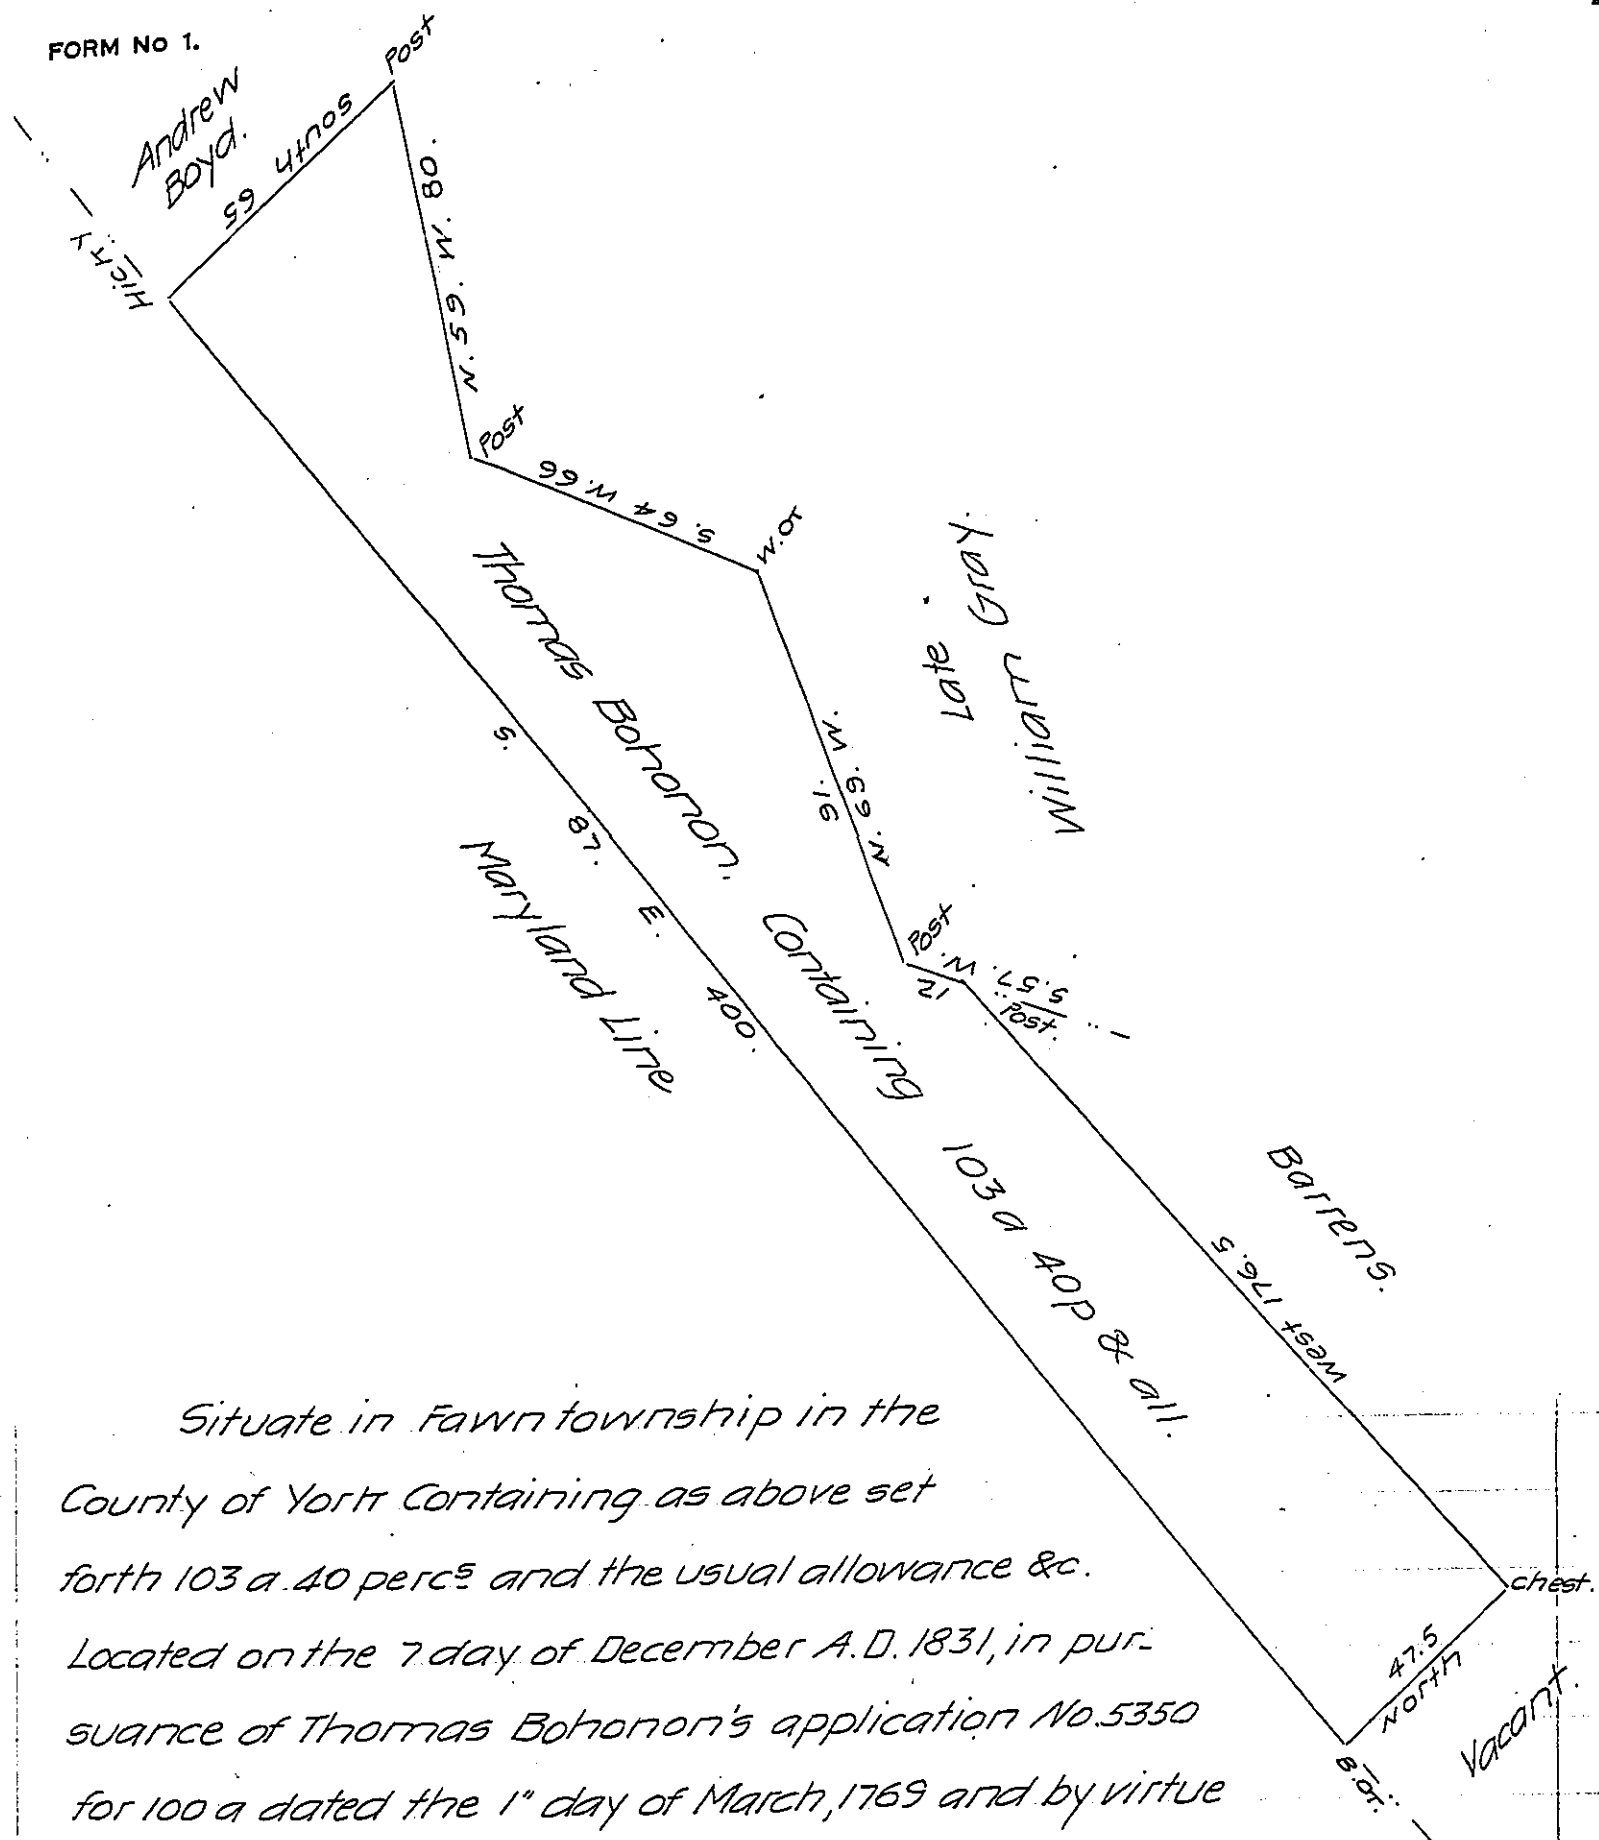 FORM No 1.
Post
Andrew
Boyd.
South 65
Hick.y
N. 59. W. 80.
Post
S. 64 W. 66
W. or
Late
William Gray.
N. 69. W.
91.
Thomas Bohonon. Containing 103 a 40p & all.
S. 87. E. 400.
Maryland Line
Post
S. 57. W.
12
Post.
Barrens.
West 176.5
chest.
47.5
North
Vacant.
B. or.
Situate in Fawn township in the
County of York Containing as above set
forth 103 a. 40 percs and the usual allowance &c.
Located on the 7 day of December A.D. 1831, in pur-
suance of Thomas Bohonon's application No. 5350
for 100 a dated the 1" day of March, 1769 and by virtue